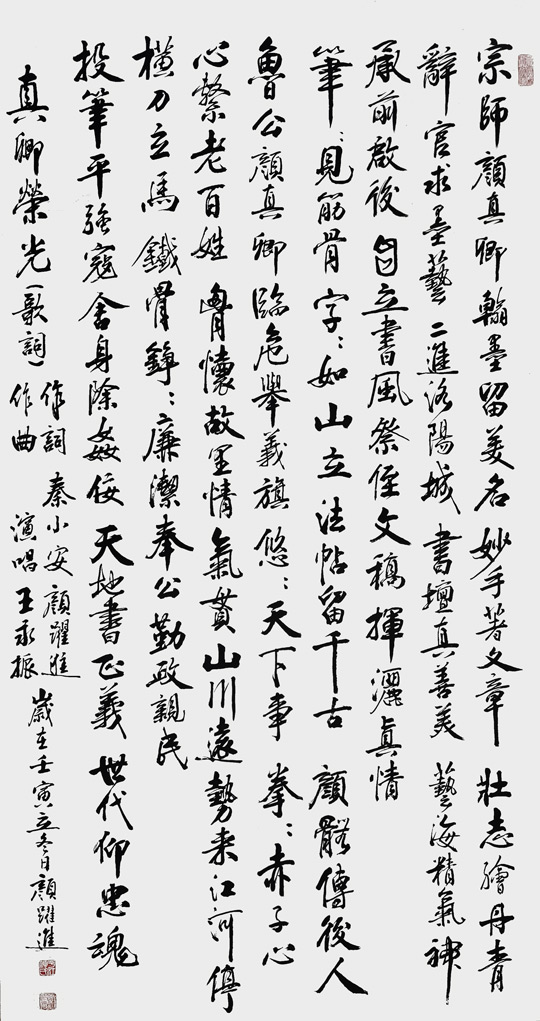 宗師顏真卿翰墨留美名妙手著文章 壯志繪丹青
辭官求墨藝 二進洛陽城 書壇真善美 藝海精氣神
承前啟後自立書風祭侄文稿揮灑真情
筆〻見筋骨字〻如山立法帖留千古 顏髓傳後人
魯公顏真卿臨危舉義旗 悠〻天下事 拳〻赤子心
心繫老百姓 胸懷故里情 氣貫山川遠勢來江河停
橫刀立馬鐵骨錚〻廉潔奉公勤政親民
投筆平強寇舍身除姦佞 天地書正義 世代仰忠魂
真卿榮光(歌詞)作詞 秦小安 顏躍進
作曲 演唱 王永振 歲在壬寅立冬日顏躍進